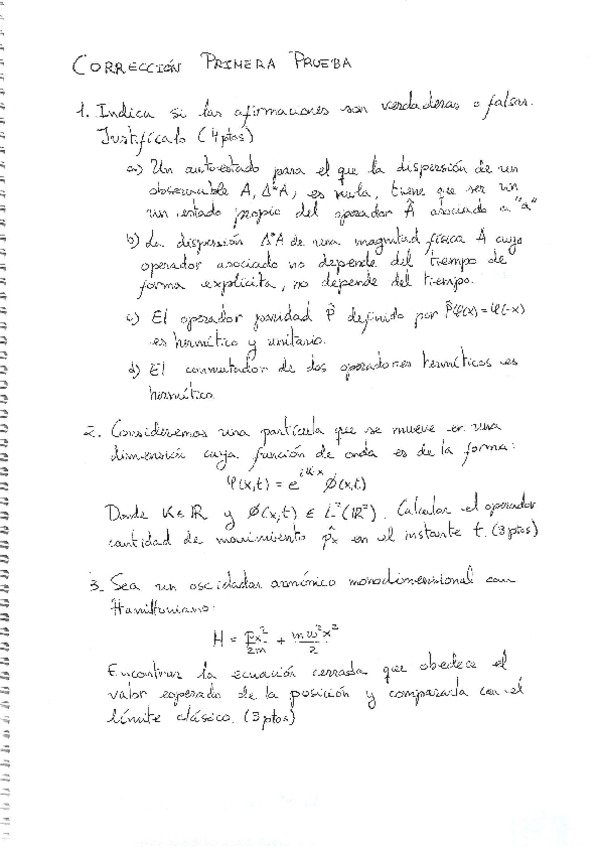 CORRECCIÓN PRIMERA PRUEBA
1. Indica si las afirmaciones son verdaderas o falsas.
Justifícalo (4 ptos)
a) Un autoestado para el que la dispersión de un
observable A, Δ²A, es nula, tiene que ser un
un estado propio del operador Â asociado a "a"
b) La dispersión Δ²A de una magnitud física A cuyo
operador asociado no depende del tiempo de
forma explícita, no depende del tiempo.
c) El operador paridad P̂ definido por P̂φ(x)=φ(-x)
es hermítico y unitario.
d) El conmutador de dos operadores hermíticos es
hermítico
2. Consideremos una partícula que se mueve en una
dimensión cuya función de onda es de la forma:
φ(x,t) = e^{ikx} Ø(x,t)
Donde K∈ℝ y Ø(x,t) ∈ L²(ℝ²). Calcular el operador
cantidad de movimiento p̂x en el instante t. (3 ptos)
3. Sea un oscilador armónico monodimensional con
Hamiltoniano:
H = px²/2m + mω²x²/2
Encontrar la ecuación cerrada que obedece el
valor esperado de la posición y compararla con el
límite clásico. (3 ptos)